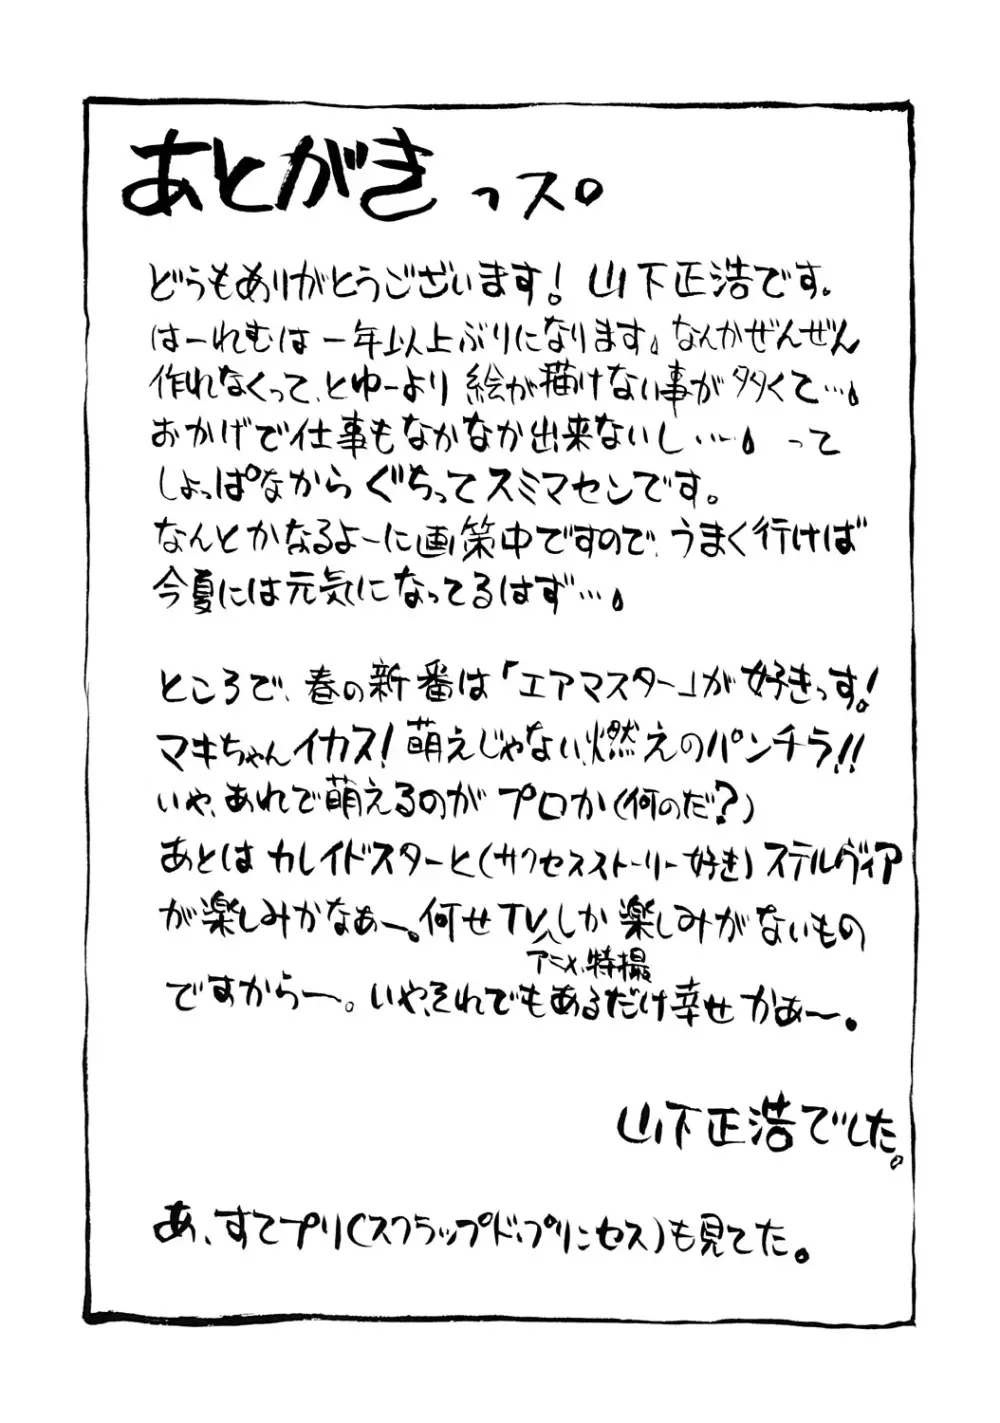 あとがきっス。
どうもありがとうございます！山下正浩です。
はーれむは一年以上ぶりになります。なんかぜんぜん
作れなくって、とゆーより絵が描けない事が多くて…。
おかげで仕事もなかなか出来ないし…。って
しょっぱなからぐちってスミマセンです。
なんとかなるよーに画策中ですので、うまく行けば
今夏には元気になってるはず…。
ところで、春の新番は「エアマスター」が好きっす！
マキちゃんイカス！萌えじゃない、燃えのパンチラ!!
いや、あれで萌えるのがプロか(何のだ？)
あとはカレイドスターと(サクセスストーリー好き)ステルヴィア
が楽しみかなぁー。何せTVしか楽しみがないもの
アニメ、特撮
ですからー。いや、それでもあるだけ幸せかぁ〜。
山下正浩でした。
あ、すてプリ(スクラップド・プリンセス)も見てた。